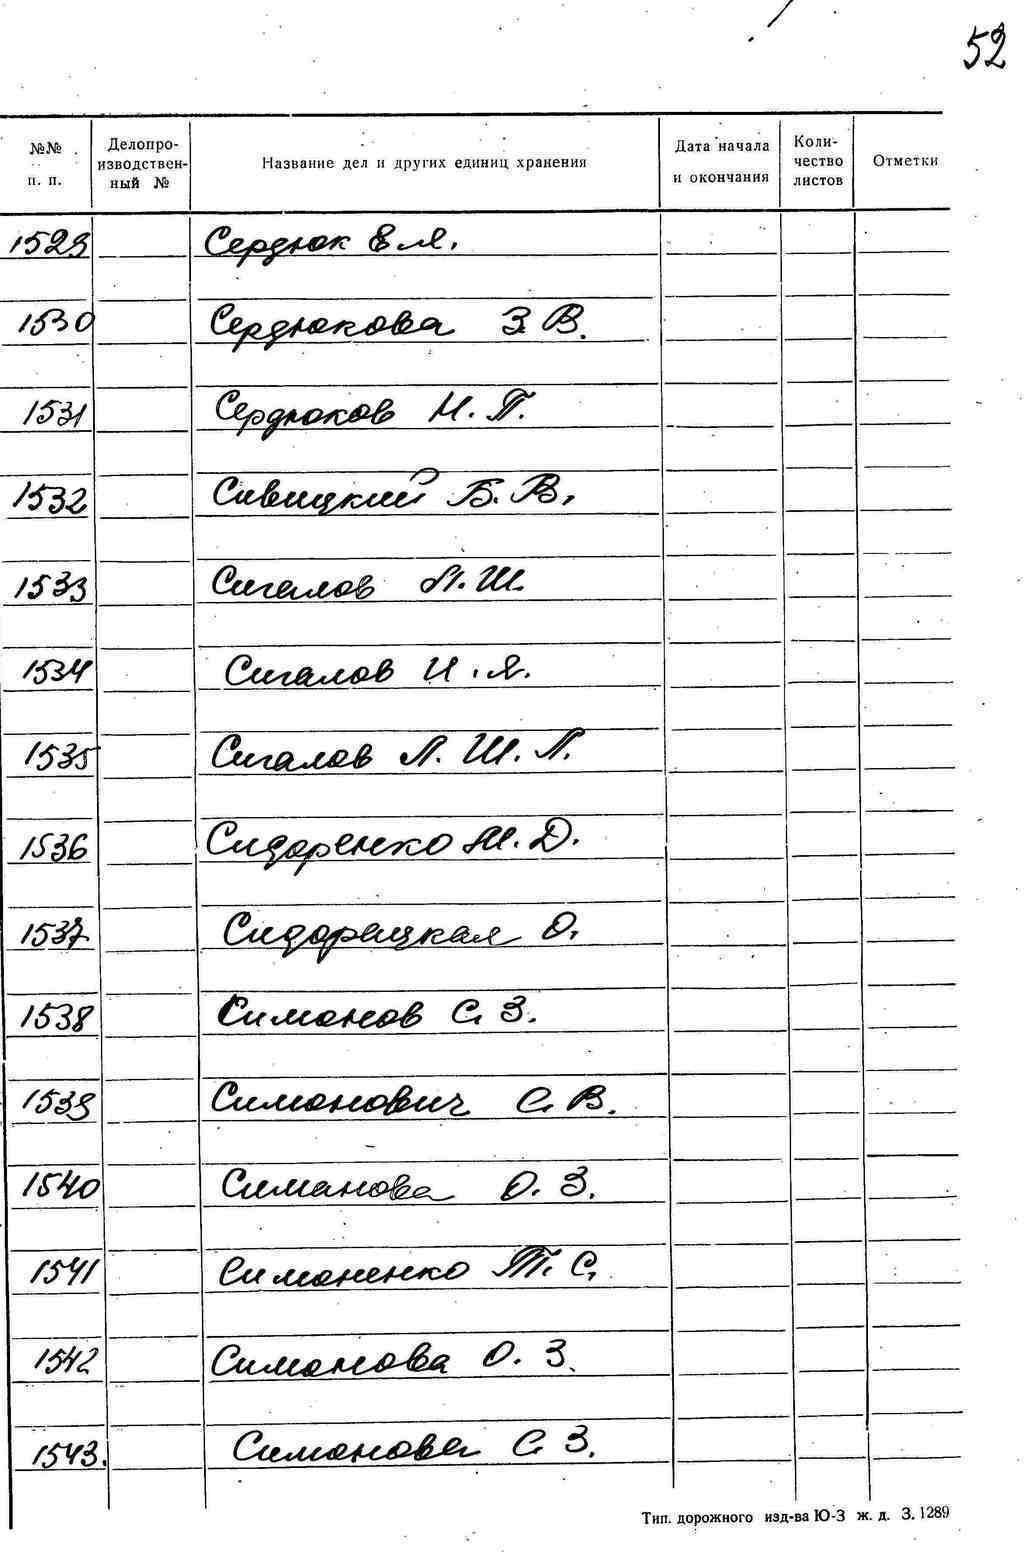 52
№№ п. п. Делопроизводственный № Название дел и других единиц хранения Дата начала и окончания Количество листов Отметки
1529 Сердюк Е. Я.
1530 Сердюкова З. В.
1531 Сердюков Н. П.
1532 Сивицкий Б. В.
1533 Сигалов Л. Ш.
1534 Сигалов И. Я.
1535 Сигалов Л. Ш. Л.
1536 Сидоренко М. Д.
1537 Сидорецкая О.
1538 Симонов С. З.
1539 Симонович С. В.
1540 Симанова О. З.
1541 Симоненко Т. С.
1542 Симонова О. З.
1543. Симонова С. З.
Тип. дорожного изд-ва Ю-З ж. д. З. 1289